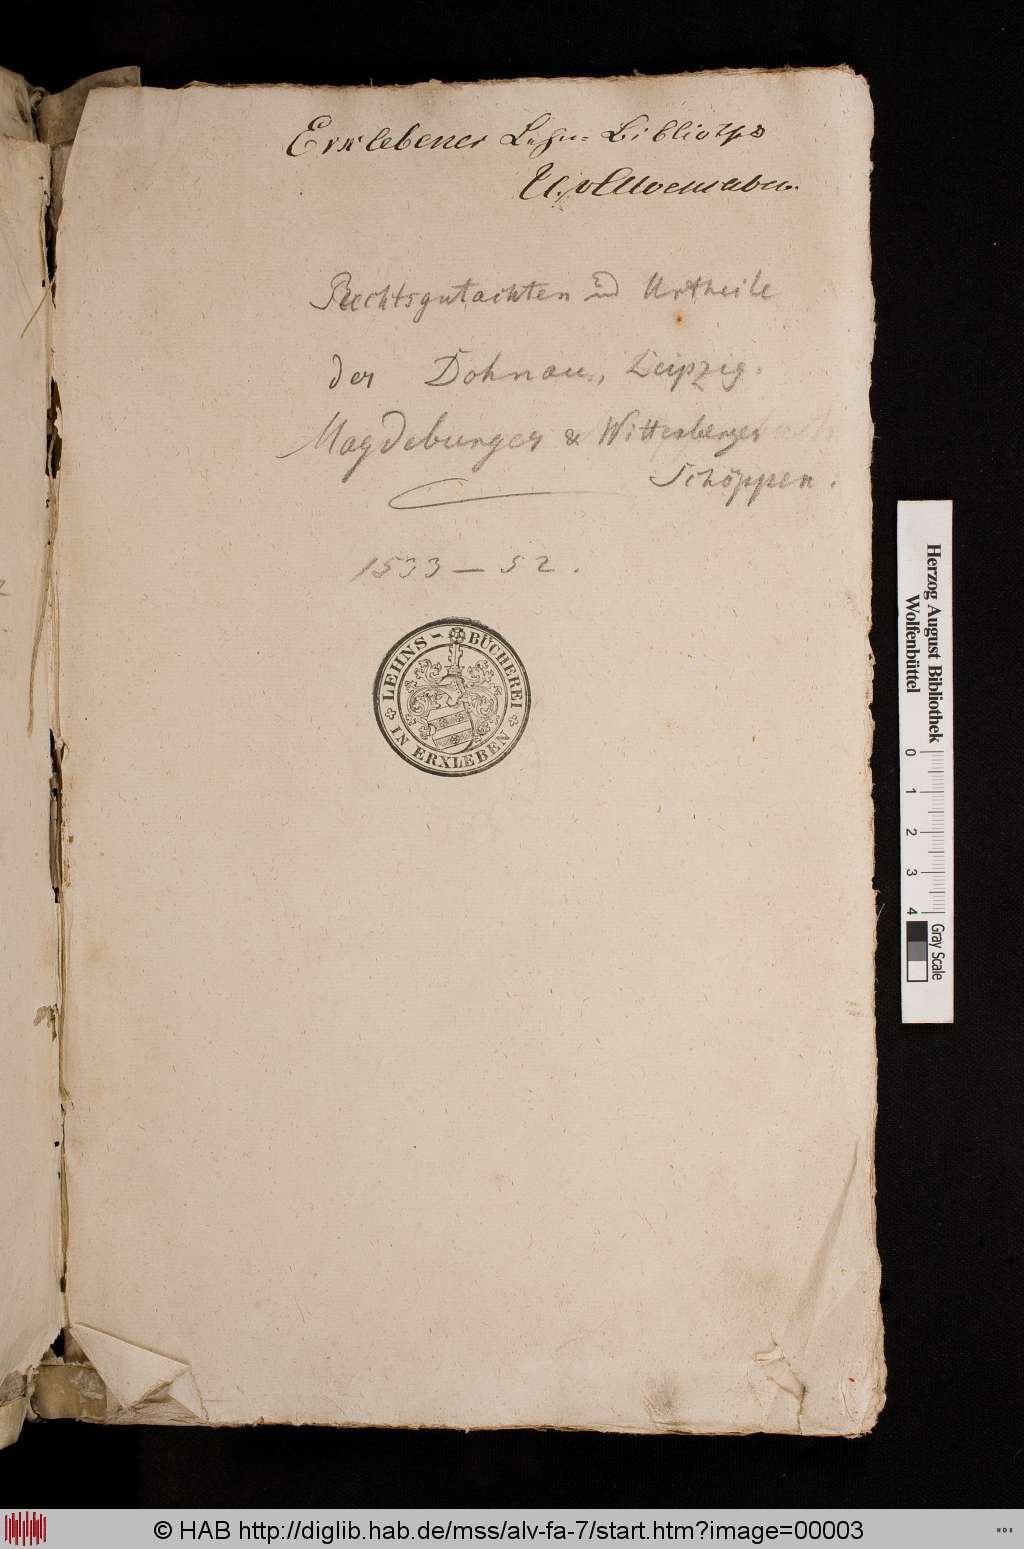 Erxlebener Lehn-Bibliothek
U. v Alvensleben.
Rechtsgutachten und Urtheile
der Dohnau, Leipzig.
Magdeburger & Wittenberger
Schöppen.
1533 – 52.
LEHNS-BÜCHEREI
IN ERXLEBEN
Herzog August Bibliothek
Wolfenbüttel
0 1 2 3 4
Gray Scale
© HAB http://diglib.hab.de/mss/alv-fa-7/start.htm?image=00003